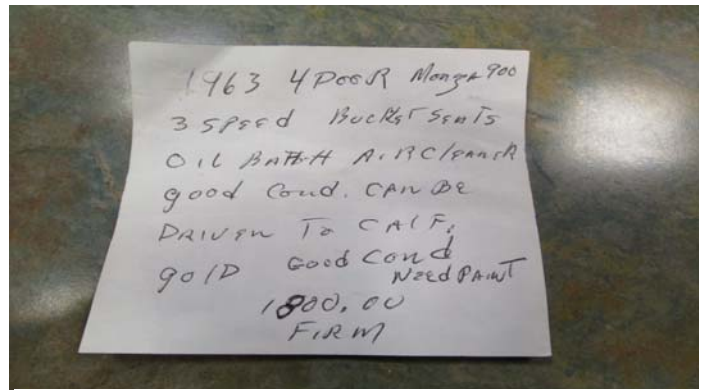 1963 4 DOOR Monza 900
3 SPEEd BuckET SEATS
OIL BATH AiRCLEANER
good Cond. CAN BE
DRIVEN To CALF.
gold Good Cond
NEEd PAINT
1800.00
FIRM